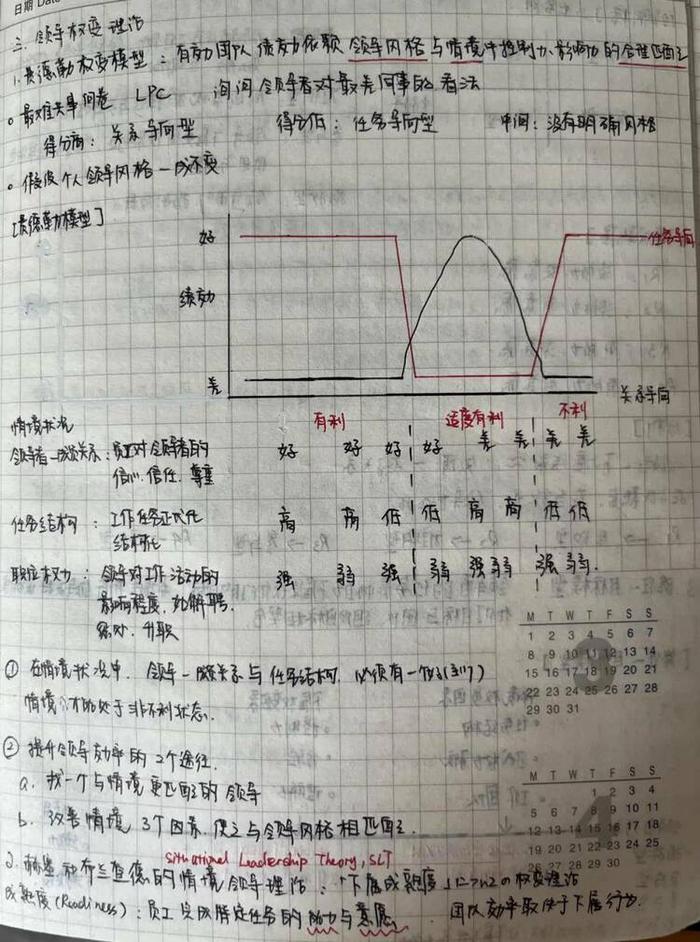 日期 Date
三. 领导权变理论
1. 费德勒权变模型：有效团队绩效依赖领导风格与情境中控制力、影响力的合理匹配
。最难共事问卷 LPC 询问领导者对最差同事的看法
得分高：关系导向型 得分低：任务导向型 中间：没有明确风格
。假设个人领导风格一成不变
[费德勒模型]
好 任务导向
绩效
差 关系导向
情境状况 有利 适度有利 不利
领导者-成员关系：员工对领导者的 好 好 好 好 差 差 差 差
信心. 信任. 尊重
任务结构：工作任务正式化 高 高 低 低 高 高 低 低
结构化
职位权力：领导对工作活动的 强 弱 强 弱 强 弱 强 弱
影响程度. 如解聘.
惩处. 升职
① 在情境状况中. 领导-成员关系与任务结构. 必须有一好
情境才能处于非不利状态.
② 提升领导效率的2个途径.
a. 找一个与情境更匹配的领导
b. 改善情境3个因素. 使之与领导风格相匹配.
Situational Leadership Theory, SLT
2. 赫塞和布兰查德的情境领导理论：「下属成熟度」の权变理论
成熟度 (Readiness)：员工完成特定任务的能力与意愿. 团队效率取决于下属行为.
M T W T F S S
1 2 3 4 5 6 7
8 9 10 11 12 13 14
15 16 17 18 19 20 21
22 23 24 25 26 27 28
29 30 31
M T W T F S S
1 2 3 4
5 6 7 8 9 10 11
12 13 14 15 16 17 18
19 20 21 22 23 24 25
26 27 28 29 30